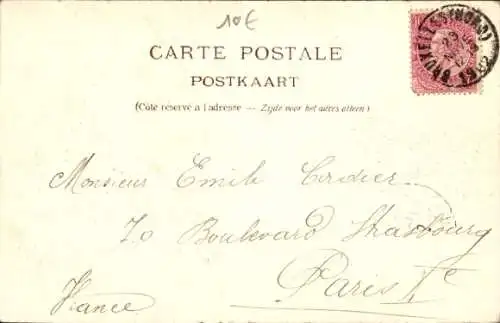 10€
BRUXELLES (NORD)
CARTE POSTALE
POSTKAART
(Côté réservé à l'adresse — Zijde voor het adres alleen)
Monsieur Emile Cordier
70 Boulevard Strasbourg
Paris Xe
France